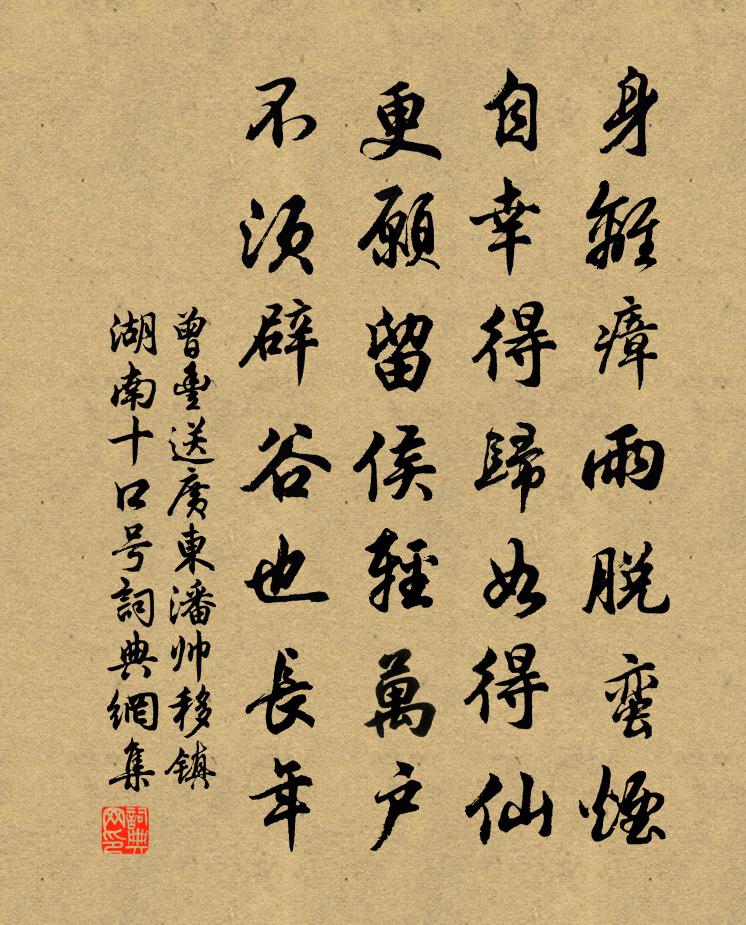 身離瘴雨脫蛮煙
自幸得歸如得仙
更願留侯輕萬戶
不須辟谷也長年
曾豊送廣東潘帅移镇
湖南十口号詞典網集
詞典网印